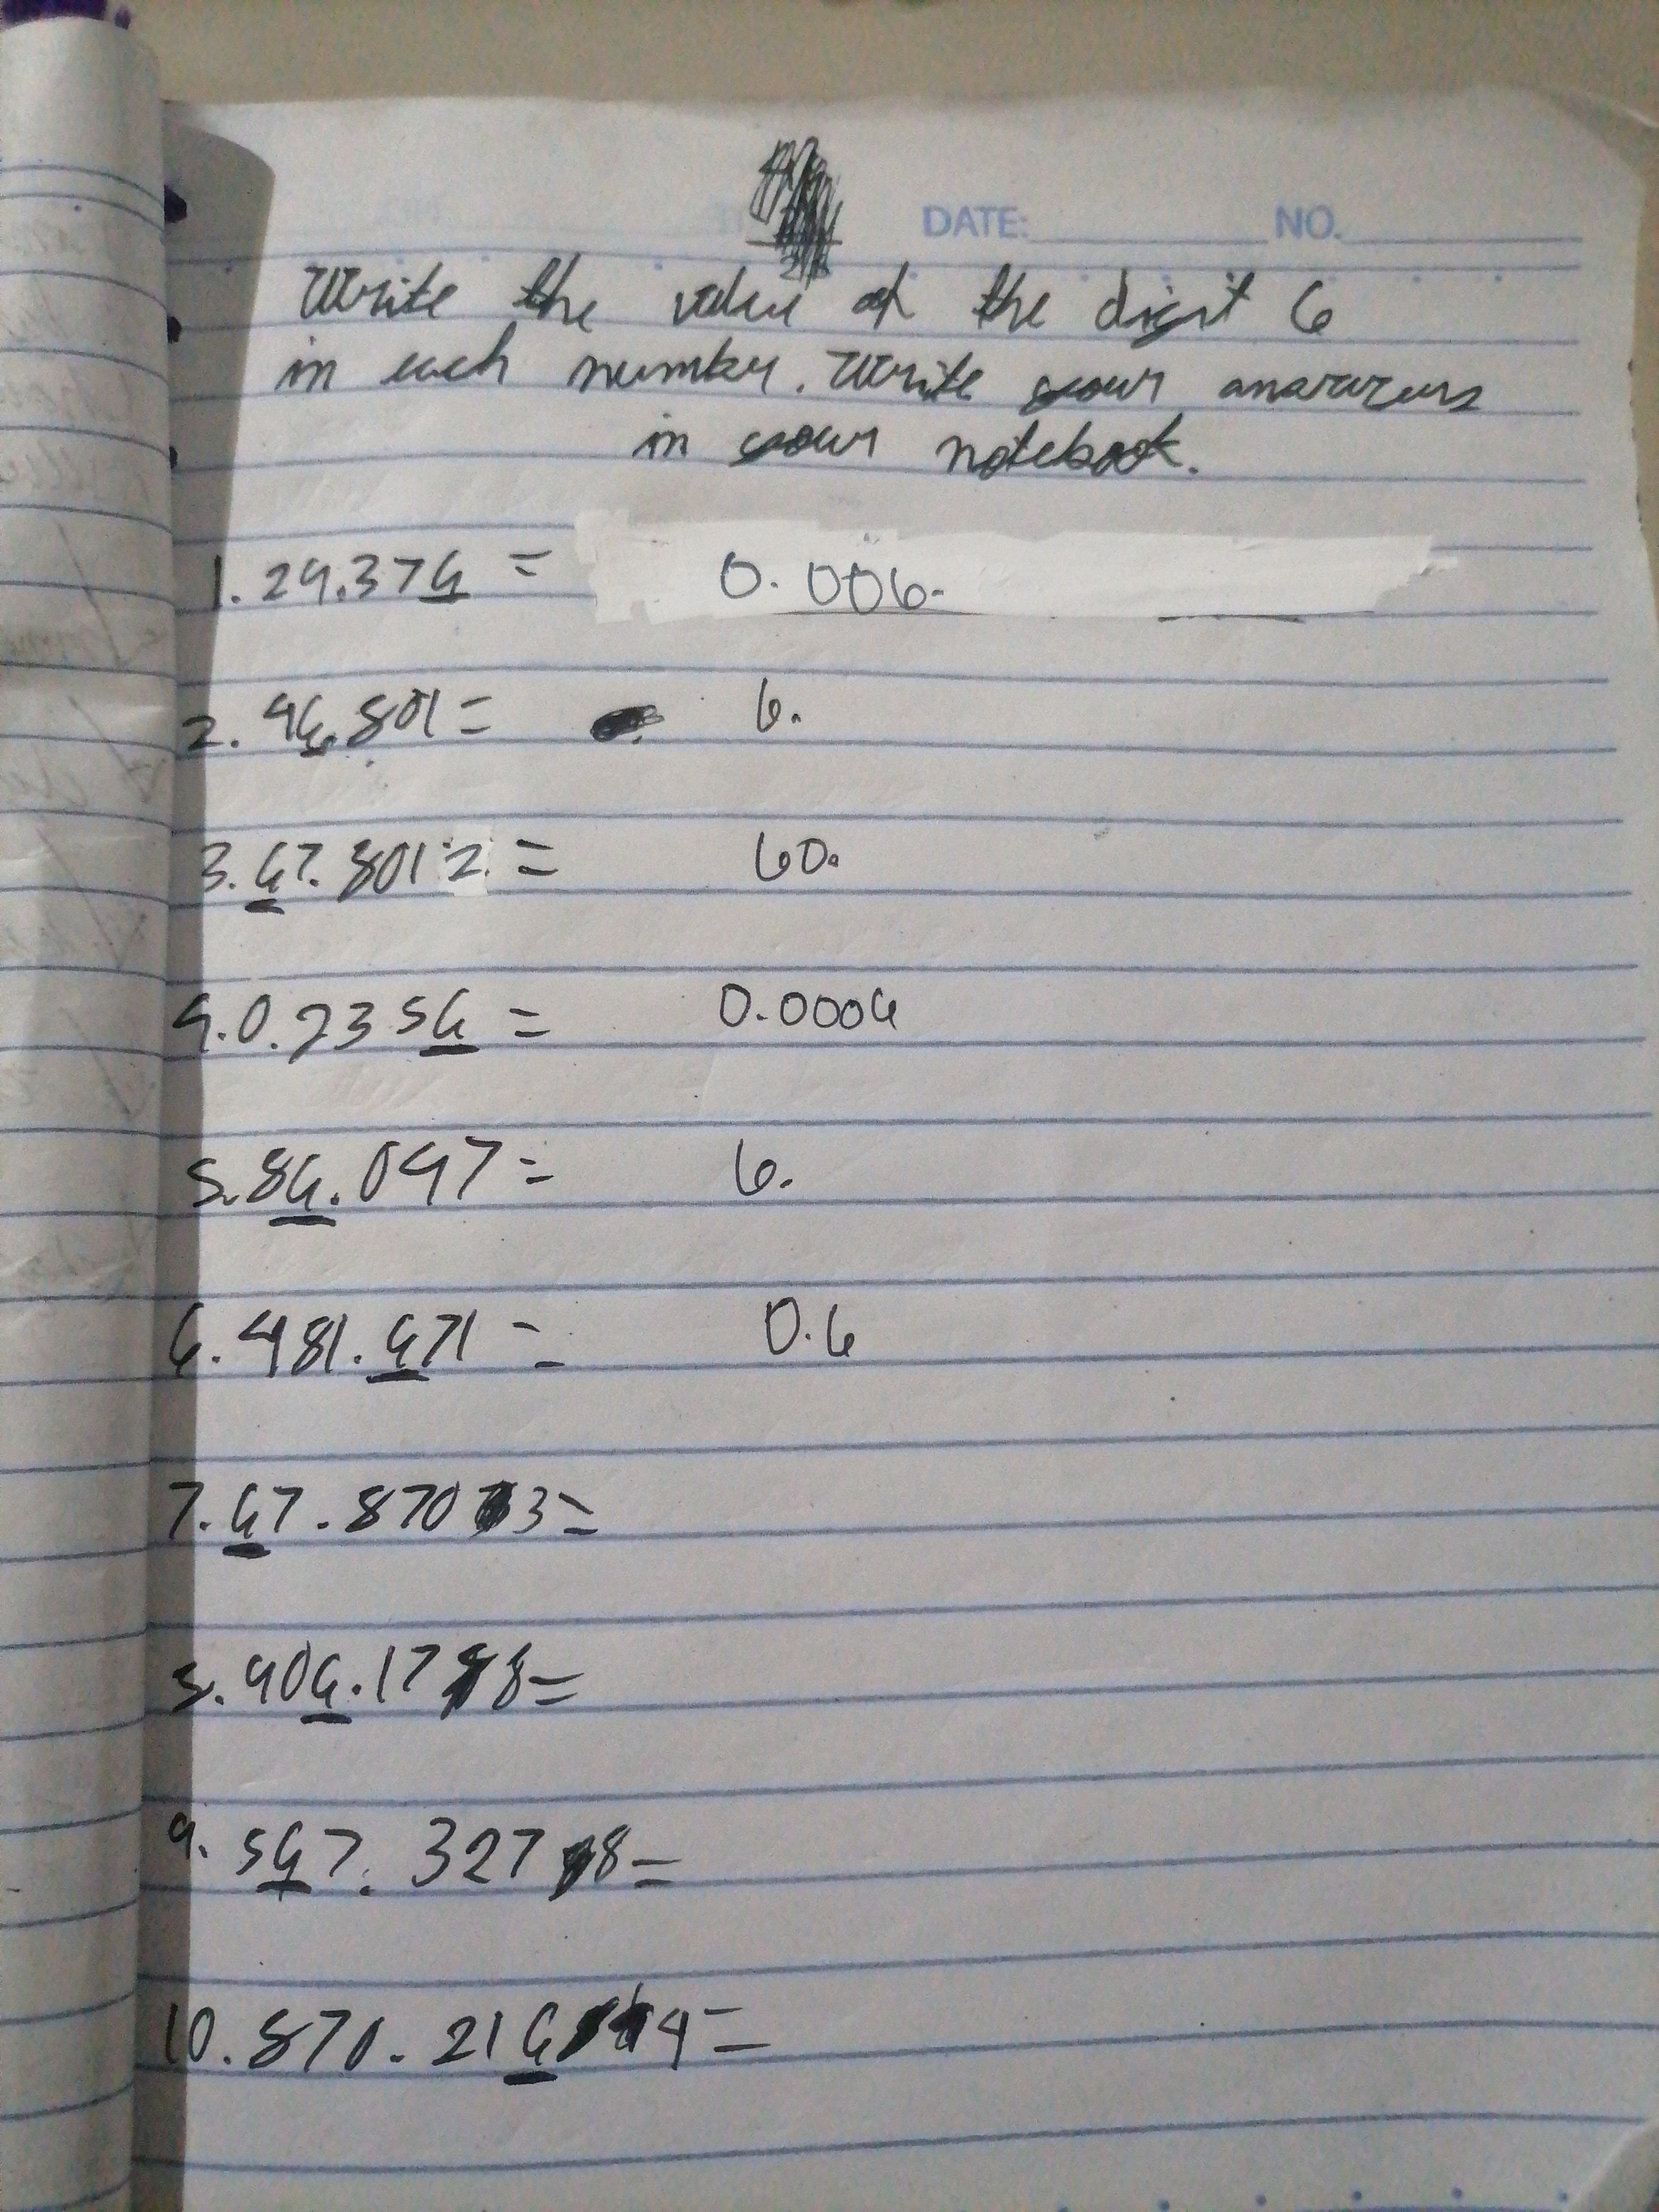 DATE: NO.
Write the value of the digit 6
in each number. Write your answers
in your notebook.
1. 24.376 = 0.006.
2. 46.801 = 6.
3. 67.8012 = 60.
4. 0.2356 = 0.0006
5. 86.047 = 6.
6. 481.671 = 0.6
7. 67.8703 =
8. 406.178 =
9. 567.3278 =
10. 870.2164 =